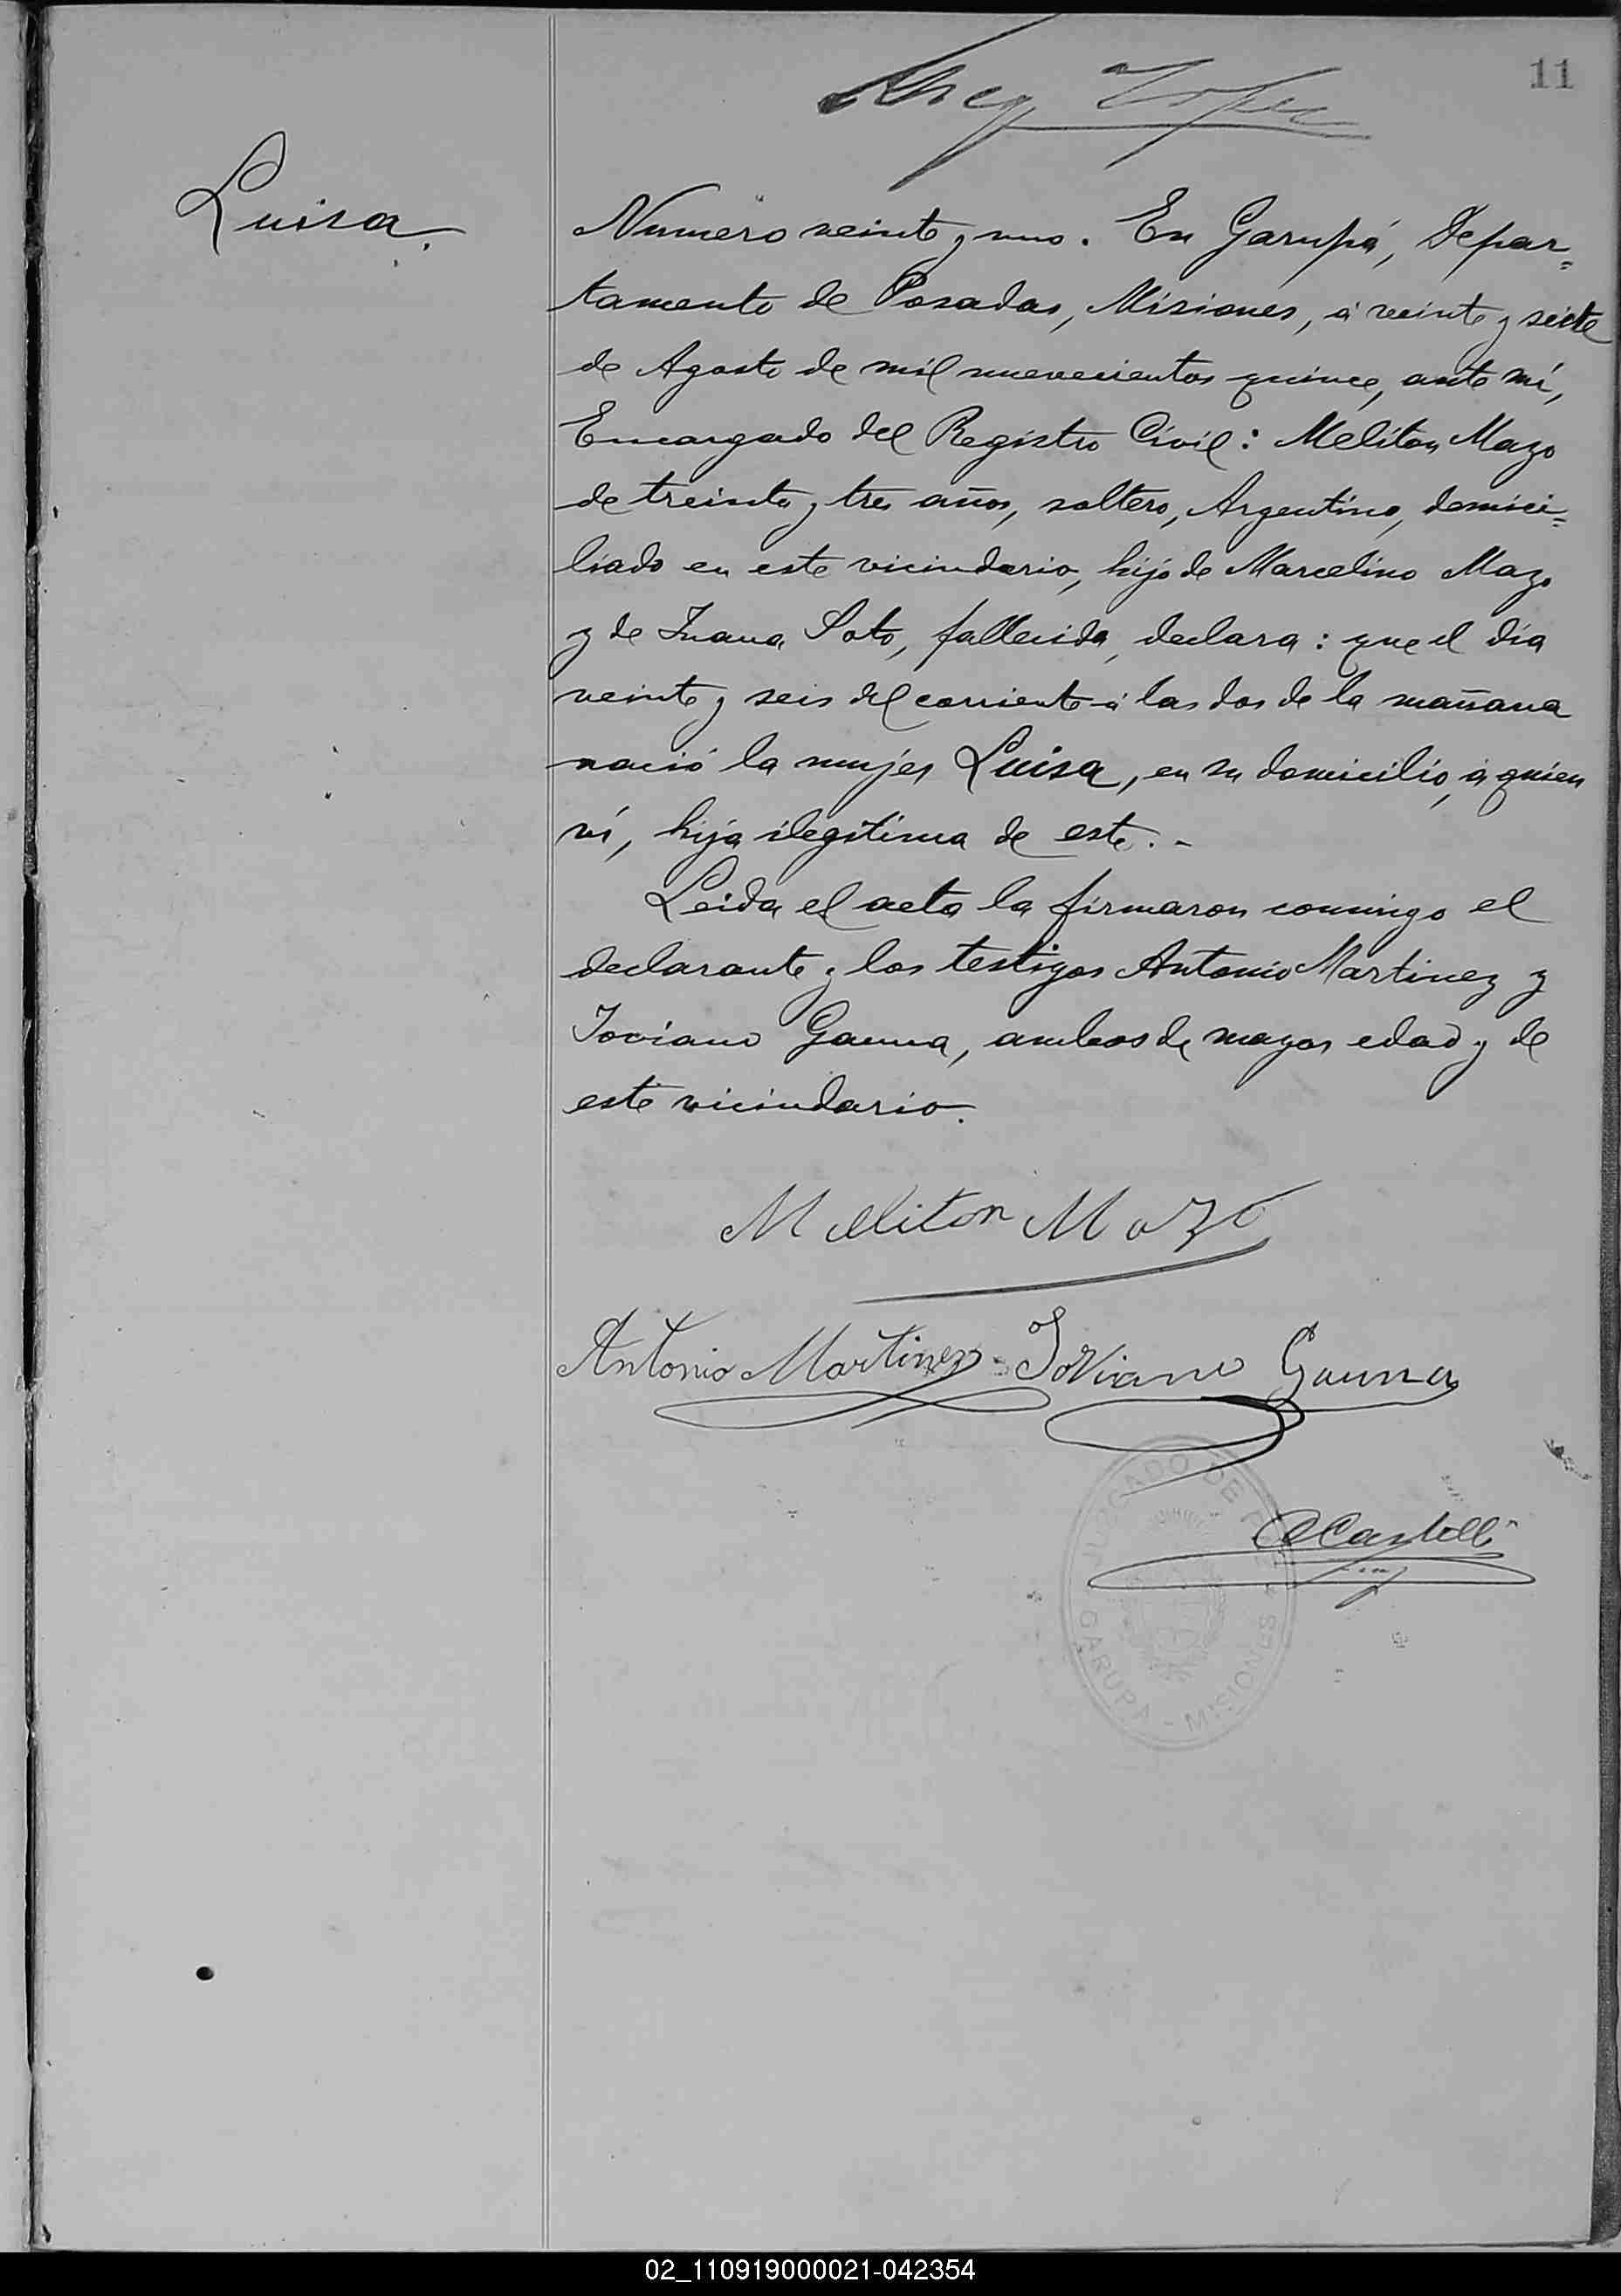 11
Luisa.
Numero veinte y uno. En Garupá, Depar=
tamento de Posadas, Misiones, á veinte y siete
de Agosto de mil nuevecientos quince, ante mí,
Encargado del Registro Civil: Meliton Mazo
de treinta y tres años, soltero, Argentino, domici=
liado en este vicindario, hijo de Marcelino Mazo
y de Juana Soto, fallecida, declara: que el dia
veinte y seis del corriente á las dos de la mañana
nació la mujer Luisa, en su domicilio, á quien
ví, hija ilegitima de este.-
Leida el acta la firmaron conmigo el
declarante y los testigos Antonio Martinez y
Joviano Gauna, ambos de mayor edad y de
este vicindario.
Melliton Mazo
Antonio Martinez Joviano Gauna
JUZGADO DE PAZ
CCastelli
GARUPÁ - MISIONES
02_110919000021-042354